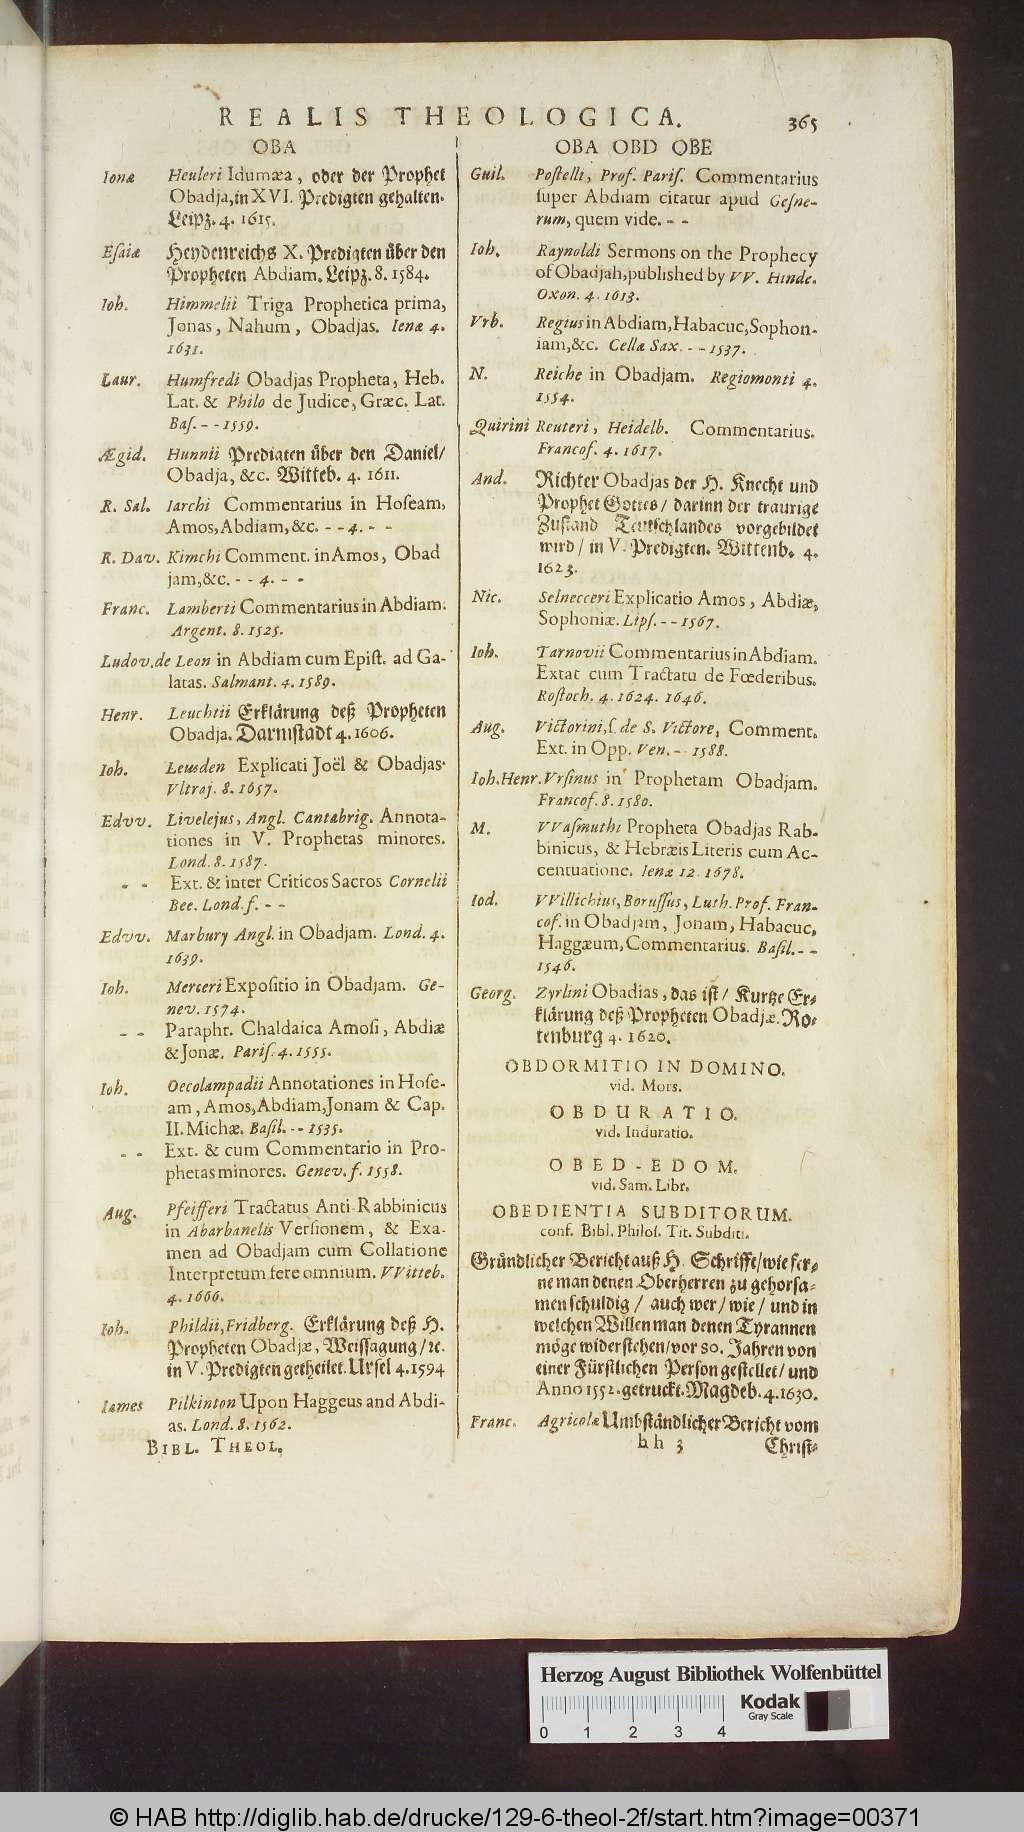 REALIS THEOLOGICA. 365
OBA
Ionæ Heuleri Idumæa, oder der Prophet
Obadja, in XVI. Predigten gehalten.
Leipz. 4. 1615.
Esaiæ Heydenreichs X. Predigten über den
Propheten Abdiam. Leipz. 8. 1584.
Ioh. Himmelii Triga Prophetica prima,
Jonas, Nahum, Obadjas. Ienæ 4.
1631.
Laur. Humfredi Obadjas Propheta, Heb.
Lat. & Philo de Judice, Græc. Lat.
Bas. - - 1559.
Ægid. Hunnii Predigten über den Daniel/
Obadja, &c. Witteb. 4. 1611.
R. Sal. Iarchi Commentarius in Hoseam,
Amos, Abdiam, &c. - - 4. - -
R. Dav. Kimchi Comment. in Amos, Obad
jam, &c. - - 4. - -
Franc. Lamberti Commentarius in Abdiam.
Argent. 8. 1525.
Ludov. de Leon in Abdiam cum Epist. ad Ga-
latas. Salmant. 4. 1589.
Henr. Leuchtii Erklärung deß Propheten
Obadja. Darmstadt 4. 1606.
Ioh. Leusden Explicati Joël & Obadjas.
Vltraj. 8. 1657.
Edvv. Livelejus, Angl. Cantabrig. Annota-
tiones in V. Prophetas minores.
Lond. 8. 1587.
- - Ext. & inter Criticos Sacros Cornelii
Bee. Lond. f. - -
Edvv. Marbury Angl. in Obadjam. Lond. 4.
1639.
Ioh. Merceri Expositio in Obadjam. Ge-
nev. 1574.
- - Paraphr. Chaldaica Amosi, Abdiæ
& Jonæ. Paris. 4. 1555.
Ioh. Oecolampadii Annotationes in Hose-
am, Amos, Abdiam, Jonam & Cap.
II. Michæ. Basil. - - 1535.
- - Ext. & cum Commentario in Pro-
phetas minores. Genev. f. 1558.
Aug. Pfeifferi Tractatus Anti-Rabbinicus
in Abarbanelis Versionem, & Exa-
men ad Obadjam cum Collatione
Interpretum fere omnium. VVitteb.
4. 1666.
Ioh. Phildii, Fridberg. Erklärung deß H.
Propheten Obadjæ, Weissagung/ ꝛc.
in V. Predigten getheilet. Ursel 4. 1594
Iames Pilkinton Upon Haggeus and Abdi-
as. Lond. 8. 1562.
BIBL. THEOL.
OBA OBD OBE
Guil. Postelli, Prof. Paris. Commentarius
super Abdiam citatur apud Gesne-
rum, quem vide. - -
Ioh. Raynoldi Sermons on the Prophecy
of Obadjah, published by VV. Hinde.
Oxon. 4. 1613.
Vrb. Regius in Abdiam, Habacuc, Sophon-
iam, &c. Cellæ Sax. - - 1537.
N. Reiche in Obadjam. Regiomonti 4.
1554.
Quirini Reuteri, Heidelb. Commentarius.
Francof. 4. 1617.
And. Richter Obadjas der H. Knecht und
Prophet Gottes/ darinn der traurige
Zustand Teutschlandes vorgebildet
wird/ in V. Predigten. Wittenb. 4.
1623.
Nic. Selnecceri Explicatio Amos, Abdiæ,
Sophoniæ. Lips. - - 1567.
Ioh. Tarnovii Commentarius in Abdiam.
Extat cum Tractatu de Fœderibus.
Rostoch. 4. 1624. 1646.
Aug. Victorini, s. de S. Victore, Comment.
Ext. in Opp. Ven. - - 1588.
Ioh. Henr. Vrsinus in Prophetam Obadjam.
Francof. 8. 1580.
M. VVasmuthi Propheta Obadjas Rab-
binicus, & Hebræis Literis cum Ac-
centuatione. Ienæ 12. 1678.
Iod. VVillichius, Borussus, Luth. Prof. Fran-
cof. in Obadjam, Jonam, Habacuc,
Haggæum, Commentarius. Basil. - -
1546.
Georg. Zyrlini Obadias, das ist/ Kurtze Er-
klärung deß Propheten Obadjæ. Ro-
tenburg 4. 1620.
OBDORMITIO IN DOMINO.
vid. Mors.
OBDURATIO.
vid. Induratio.
OBED-EDOM.
vid. Sam. Libr.
OBEDIENTIA SUBDITORUM.
conf. Bibl. Philos. Tit. Subditi.
Gründlicher Bericht auß H. Schrifft/ wie fer-
ne man denen Oberherren zu gehorsa-
men schuldig/ auch wer/ wie/ und in
welchen Willen man denen Tyrannen
möge widerstehen/ vor 80. Jahren von
einer Fürstlichen Person gestellet/ und
Anno 1552. getruckt. Magdeb. 4. 1630.
Franc. Agricolæ Umbständlicher Bericht vom
h h 3 Christ-
Herzog August Bibliothek Wolfenbüttel
Kodak
Gray Scale
0 1 2 3 4
© HAB http://diglib.hab.de/drucke/129-6-theol-2f/start.htm?image=00371